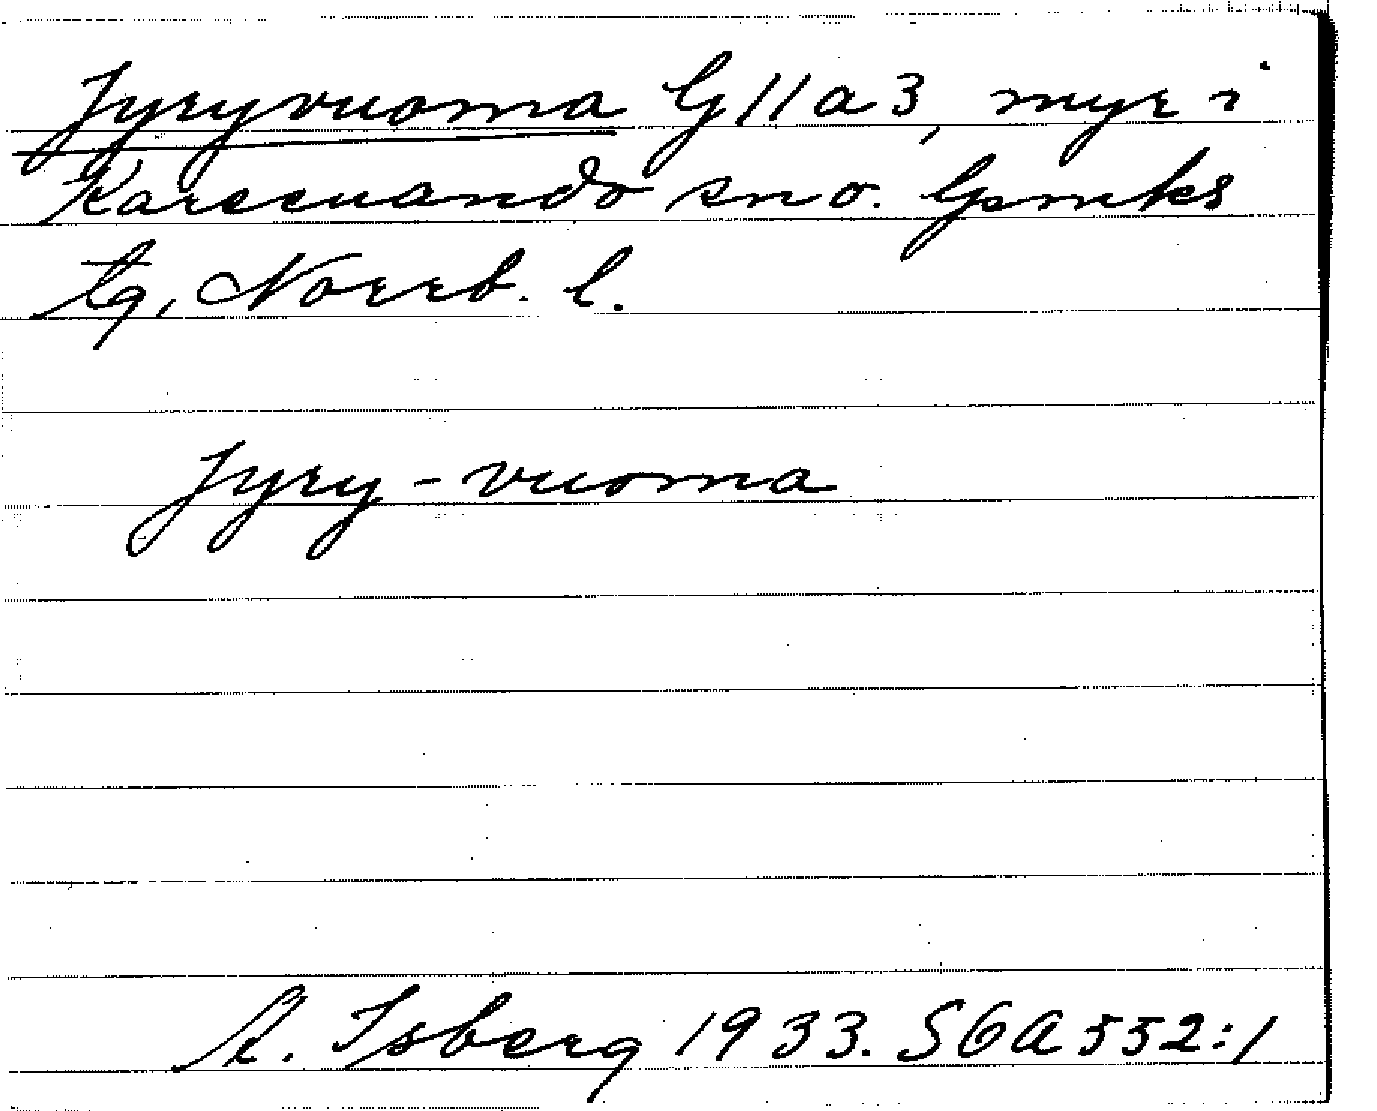 Jyryvuoma G11a3, myr i
Karesuando sn o. Gsmks
tg, Norrb. l.
Jyry-vuoma
A. Isberg 1933. SGA 552:1